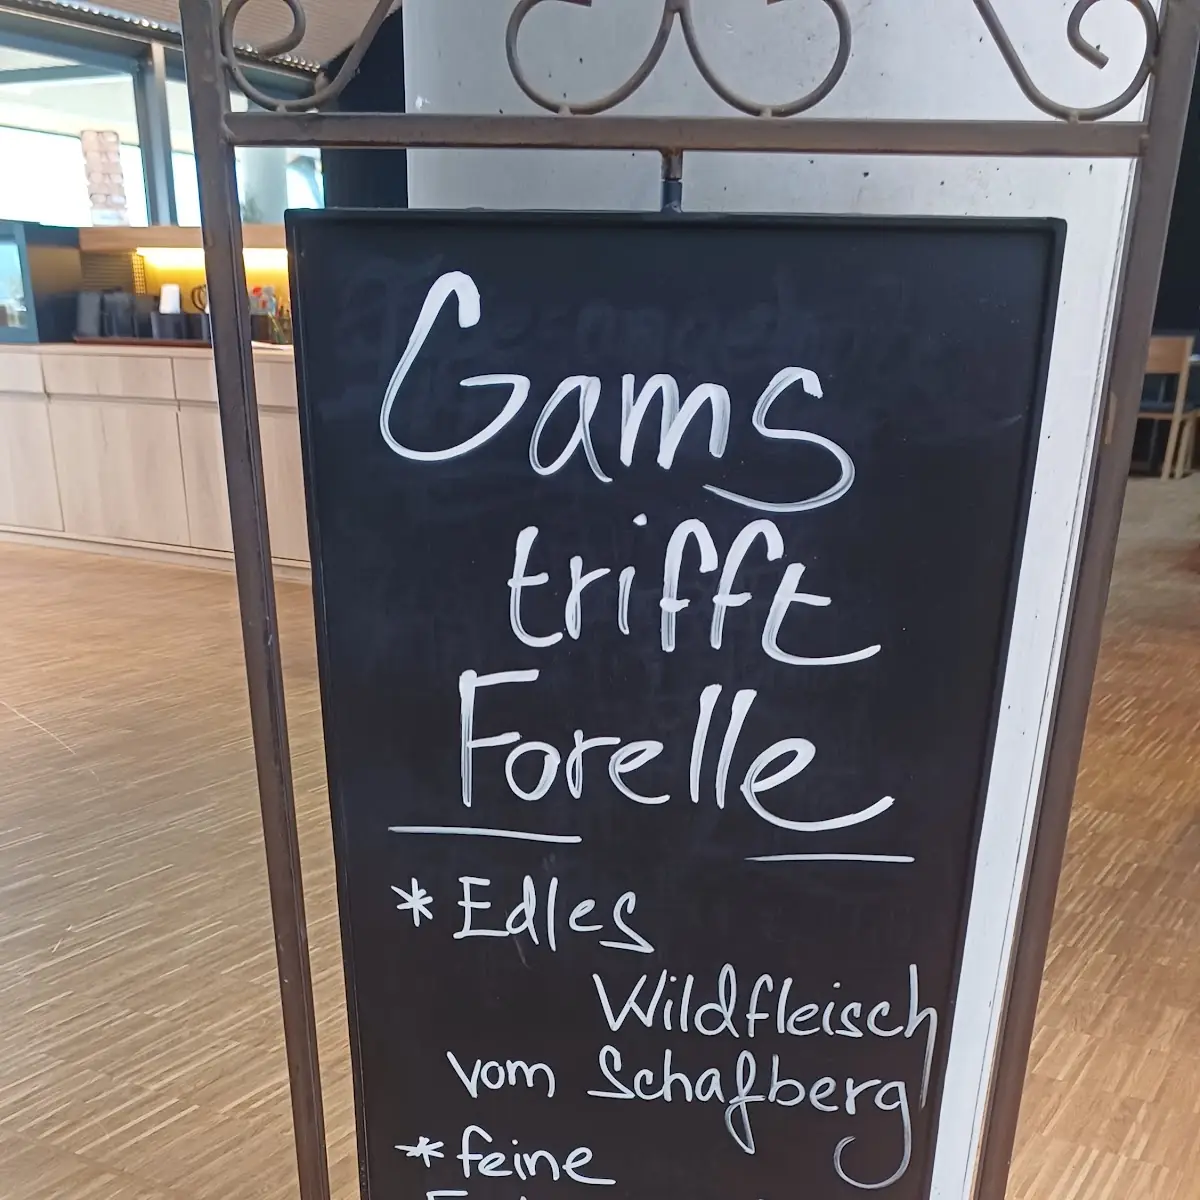 Gams
trifft
Forelle
* Edles
Wildfleisch
vom Schafberg
* feine